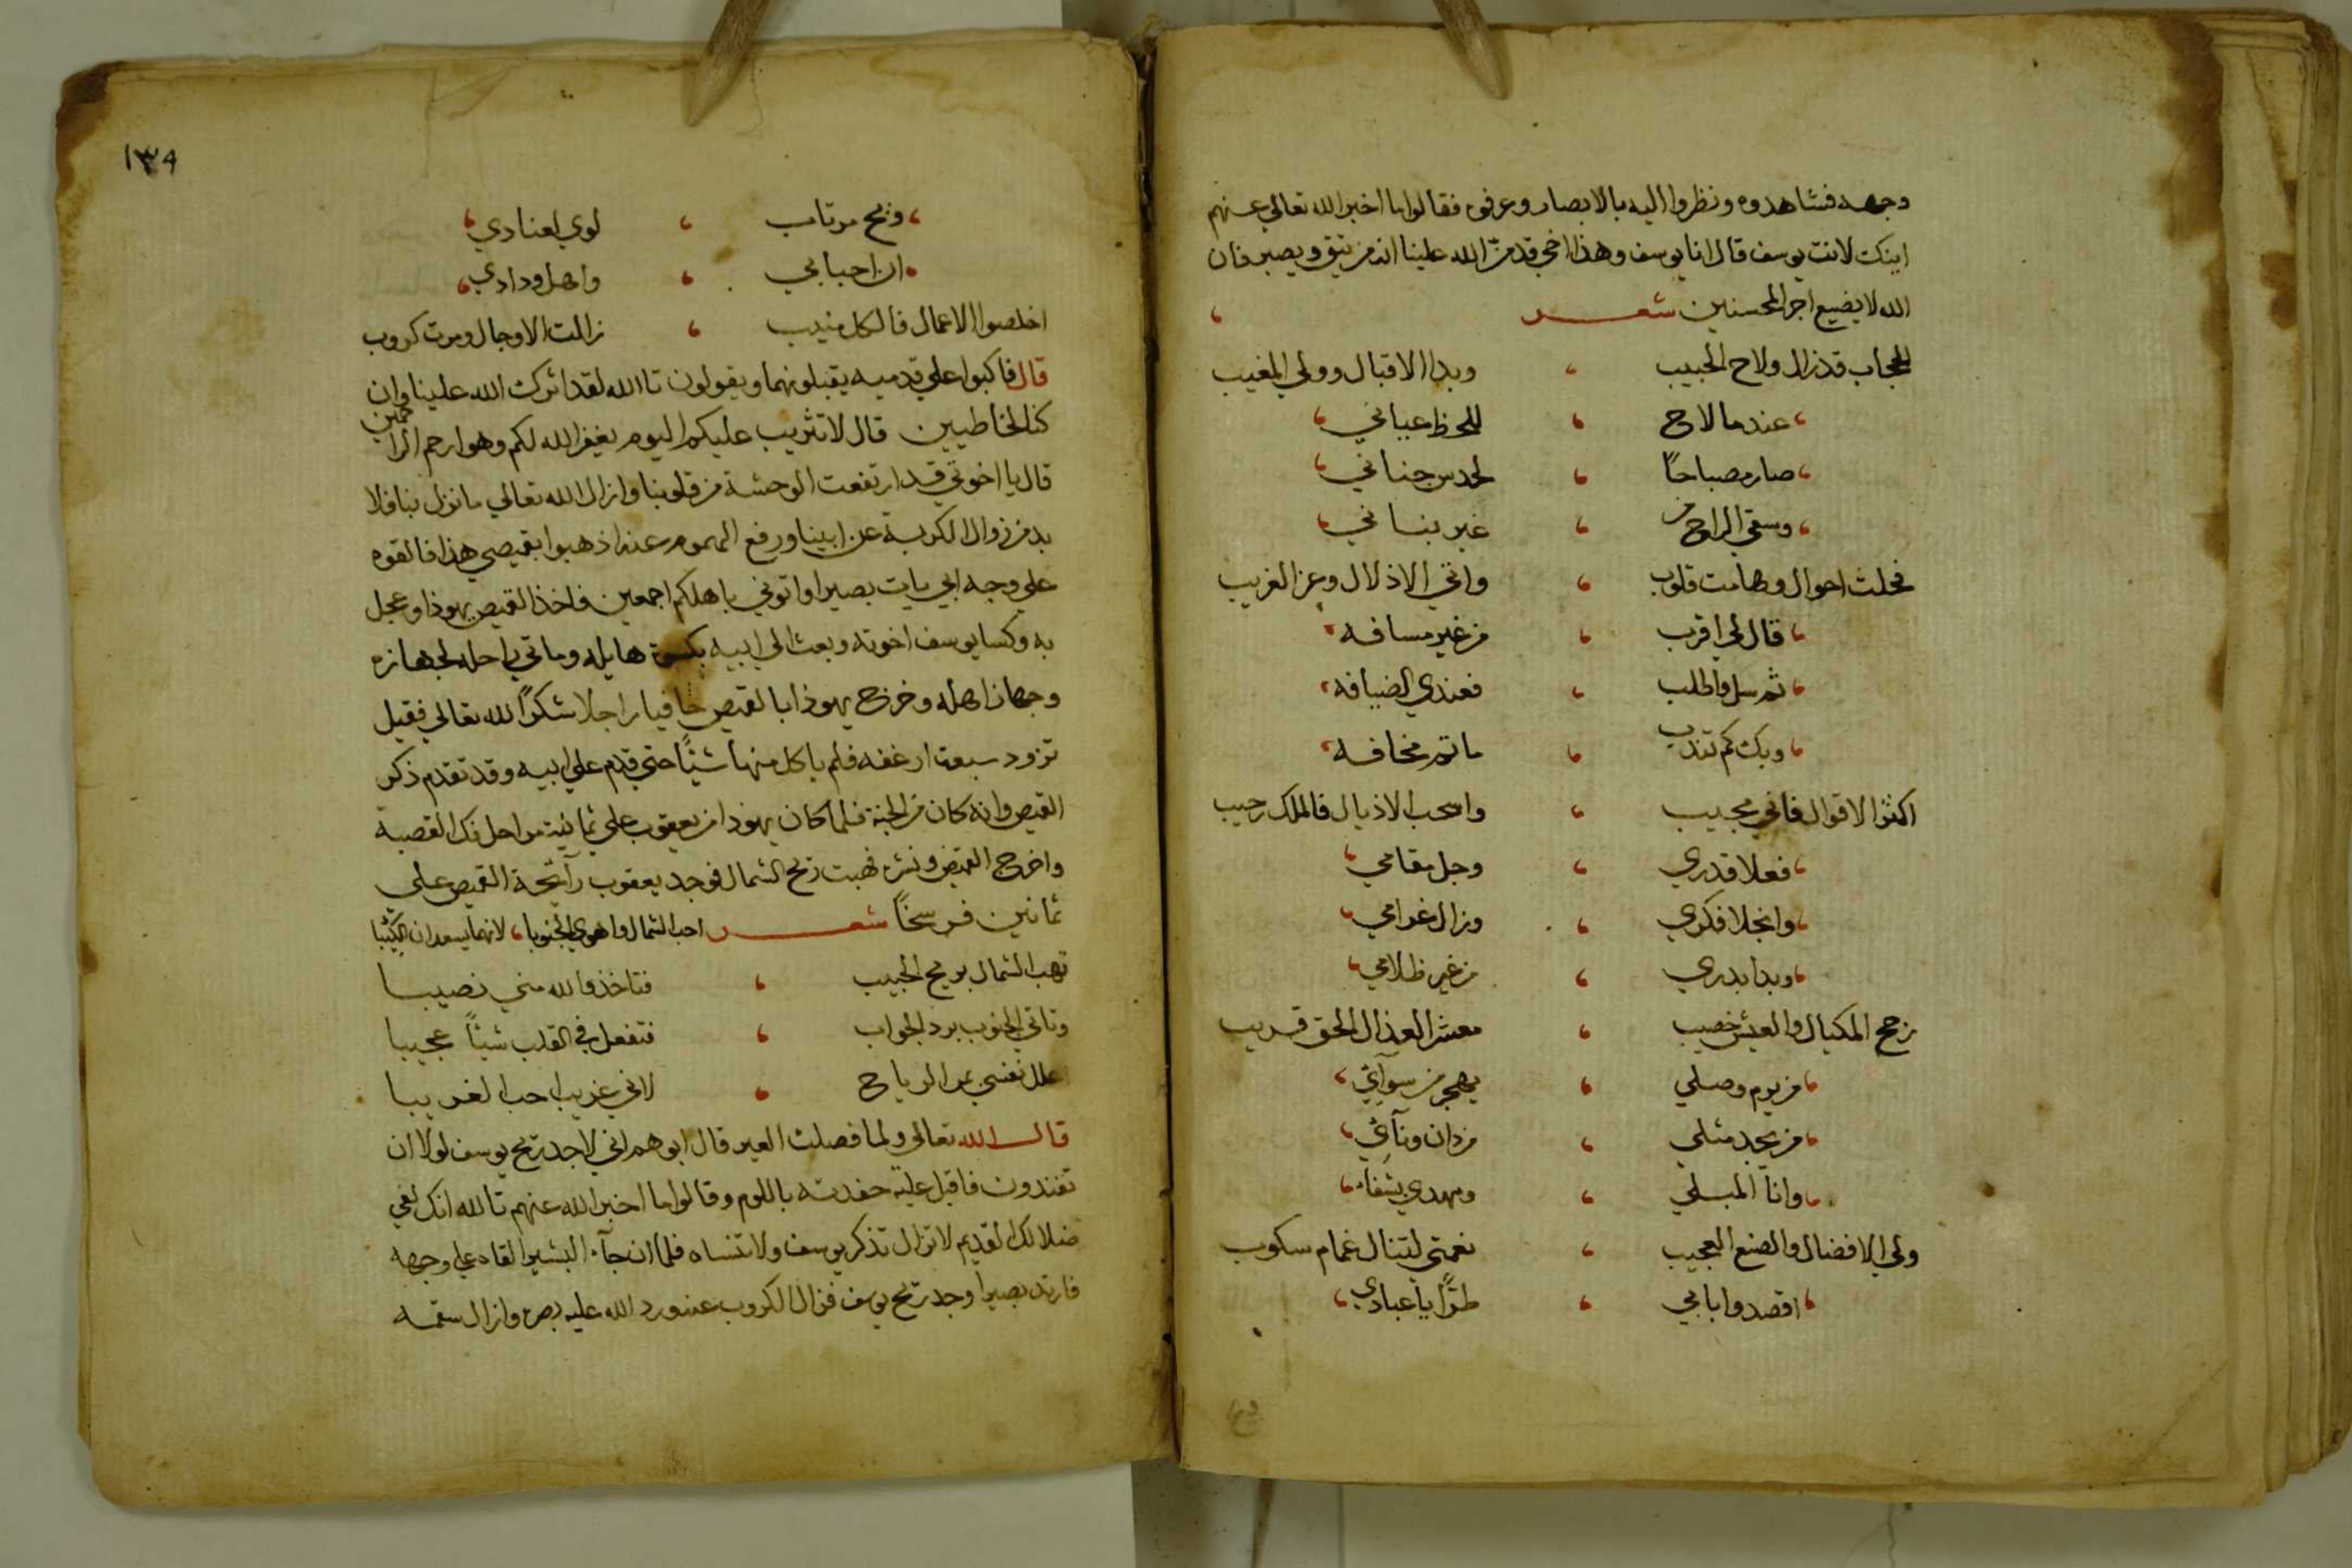 وجهه فشاهدوه ونظروا اليه بالابصار وعرفوه فقالوا ما اخبر الله تعالى عنهم
اينك لانت يوسف قال انا يوسف وهذا اخي قد من الله علينا انه من يتق ويصبر فان
الله لا يضيع اجر المحسنين شعر
الحجاب قد زال ولاح الحبيب ، وبدا الاقبال وولي المغيب
، عند ما لاح ، للحظ عياني ،
، صار مصباحًا ، لحدس جناني ،
، وسقي الراح من ، غير بناني ،
فحلت احوال وهامت قلوب ، واتي الاذلال وعز الغريب
، قال لي اقرب ، من غير مسافه ،
، ثم سل واطلب ، فعندي الضيافه ،
، وبك كم تندب ، ما ثم مخافه ،
اكثر الاقوال فاني مجيب ، واسحب الاذيال فالملك رحيب
، فعلا قدري ، وجل مقامي ،
، وانجلا فكري ، وزال غرامي ،
، وبدا بدري ، من غير ظلامي ،
رجح المكيال والعيش خصيب ، معشر العذال الحق قريب
، من يروم وصلي ، يهجر من سوآئي ،
، من يجد مثلي ، من دان ونآئي ،
، وانا المبلي ، ومهدي شفاء ،
ولي الافضال والصنع العجيب ، نعمتي لتنال غمام سكوب
، اقصدوا بابي ، طرًّا يا عبادي ،
١٣٩
، ويح مرتاب ، لوي لعنادي ،
، ان احبابي ، واهل ودادي ،
اخلصوا الاعمال فالكل منيب ، زالت الاوجال ومرت كروب
قال فاكبوا علي قدميه يقبلونهما ويقولون تا الله لقد اثرك الله علينا وان
كنا لخاطيين قال لا تثريب عليكم اليوم يغفر الله لكم وهو ارحم الراحمين
قال يا اخوتي قد ارتفعت الوحشة من قلوبنا وازال الله تعالي ما نزل بنا فلا
بد من زوال الكربة عن ابينا ورفع الهموم عنه اذهبوا بقميصي هذا فالقوه
علي وجه ابي يات بصيرا واتوني باهلكم اجمعين فاخذ القميص يهوذا وعجل
به وكسا يوسف اخوته وبعث الي ابيه بكسوة هايله وماتي راحله لجهازه
وجهاز اهله وخرج يهوذا بالقميص حافيا راجلا شكرًا لله تعالي فقيل
تزود سبعة ارغفه فلم ياكل منها شيئًا حتي قدم علي ابيه وقد تقدم ذكر
القميص وانه كان من الجنة فلما كان يهودا من يعقوب علي ثمانية مراحل فك القصبة
واخرج القميص ونشره فهبت ريح الشمال فوجد يعقوب رآئحة القميص علي
ثمانين فرسخًا شعر احب الشمال واهوي الجنوبا ، لانهما يسعدان الكئيبا
تهب الشمال بريح الحبيب ، فتاخذ والله مني نصيبا
وتاتي الجنوب برد الجواب ، فتفعل في القلب شيئًا عجيبا
اعلل نفسي بمر الرياح ، لاني غريب احب الغريبا
قال الله تعالي ولما فصلت العير قال ابوهم اني لاجد ريح يوسف لولا ان
تفندون فاقبل عليه حفدته باللوم وقالوا ما اخبر الله عنهم تالله انك لفي
ضلالك القديم لا تزال تذكر يوسف ولا تنساه فلما ان جآء البشير القاه علي وجهه
فارتد بصيرا وجد ريح يوسف فزال الكروب عنه ورد الله عليه بصره وازال سقمه